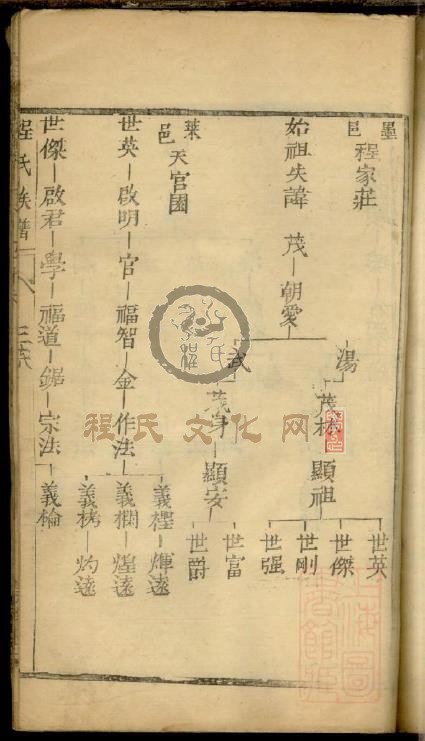 墨邑
程家莊
始祖失諱
茂—朝愛
湯
茂林
顯祖
世英
世傑
世剛
世强
武
茂身
顯安
世富
世爵
萊邑
天官園
世英—啟明—官—福智—金—作法
義檉—煇遠
義欄—煌遠
義栲—灼遠
世傑—啟君—學—福道—鋸—宗法—義楡
程氏族譜
程氏文化网